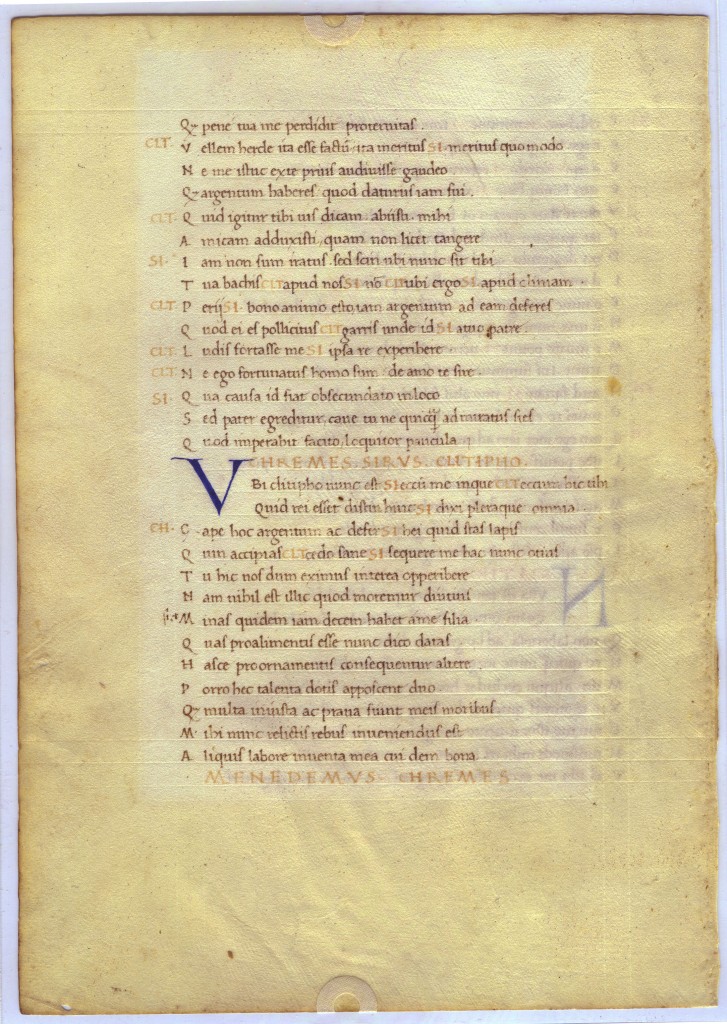 Q pene tua me perdidit proteruitas.
CLT. V ellem hercle ita esse factū, ita meritus SI. meritus quo modo
N e me istuc exte prius audiuisse gaudeo
Q argentum haberes quod daturus iam fui.
CLT. Q uid igitur tibi uis dicam. abiisti mihi
A micam adduxisti, quam non licet tangere
SI. I am non sum iratus. sed scin ubi nunc sit tibi
T ua bachis CLT apud nos SI. nō CLT ubi ergo SI. apud climiam.
CLT. P erij SI. bono animo esto, iam argentum ad eam deferes
Q uod ei es pollicitus CLT garris unde id SI atuo patre.
CLT. L udis fortasse me SI ipsa re experibere.
CLT. N e ego fortunatus homo sum. de amo te sire.
SI. Q ua causa id fiat obsecundato in loco
S ed pater egreditur, caue tu ne quicq admiratus sies
Q uod imperabit facito, loquitor paucula
CHREMES. SIRVS. CLITIPHO.
V Bi clitipho nunc est SI eccū me inque CLT eccum hic tibi
Quid rei esset dixtin huic SI dixi pleraque omnia.
CH. C ape hoc argentum ac defer SI hei quid stas lapis
Q uin accipias CLT cedo sane SI sequere me hac nunc otius
T u hic nos dum eximus interea opperibere
N am nihil est illic quod moremur diutius
M inas quidem iam decem habet ame filia
Q uas proalimentis esse nunc dico datas
H asce proornamentis consequentur altere.
P orro hec talenta dotis apposcent duo.
Q multa iniusta ac praua fiunt meis moribus.
M ihi nunc relictis rebus inueniendus est
A liquis labore inuenta mea cui dem bona.
MENEDEMVS. CHREMES